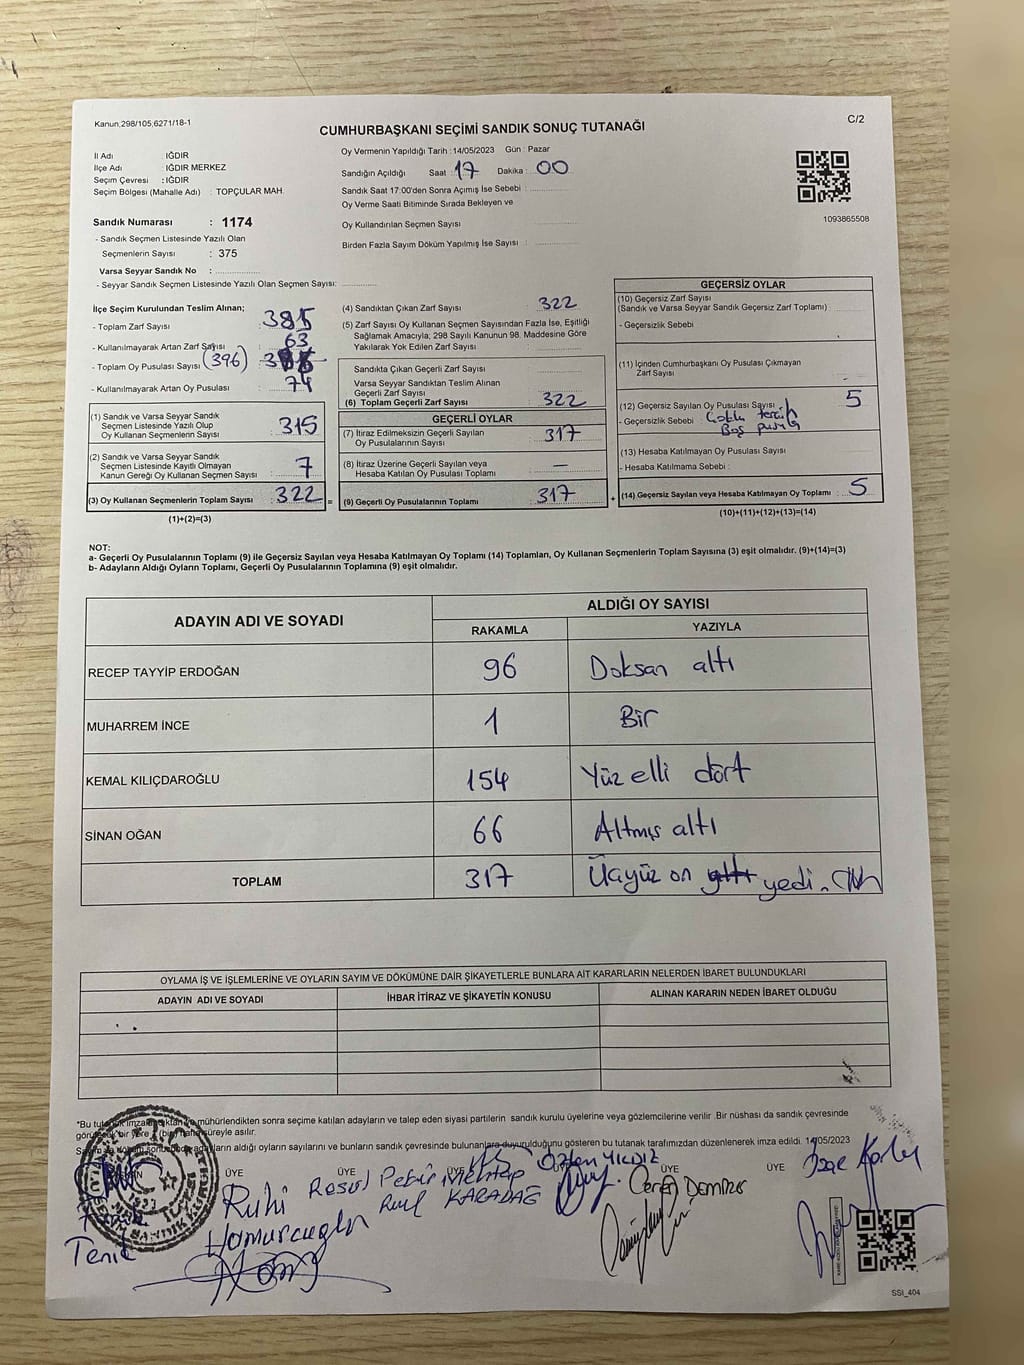 Kanun,298/105,6271/18-1
CUMHURBAŞKANI SEÇİMİ SANDIK SONUÇ TUTANAĞI
C/2
İl Adı : IĞDIR
İlçe Adı : IĞDIR MERKEZ
Seçim Çevresi : IĞDIR
Seçim Bölgesi (Mahalle Adı) : TOPÇULAR MAH.
Oy Vermenin Yapıldığı Tarih : 14/05/2023 Gün : Pazar
Sandığın Açıldığı Saat : 17 Dakika : 00
Sandık Saat 17:00'den Sonra Açımış İse Sebebi :
Oy Verme Saati Bitiminde Sırada Bekleyen ve
Oy Kullandırılan Seçmen Sayısı :
Birden Fazla Sayım Döküm Yapılmış İse Sayısı :
1093865508
Sandık Numarası : 1174
- Sandık Seçmen Listesinde Yazılı Olan
Seçmenlerin Sayısı : 375
Varsa Seyyar Sandık No :
- Seyyar Sandık Seçmen Listesinde Yazılı Olan Seçmen Sayısı:
İlçe Seçim Kurulundan Teslim Alınan;
- Toplam Zarf Sayısı : 385
- Kullanılmayarak Artan Zarf Sayısı : 63
- Toplam Oy Pusulası Sayısı (396)
- Kullanılmayarak Artan Oy Pusulası : 74
(1) Sandık ve Varsa Seyyar Sandık
Seçmen Listesinde Yazılı Olup
Oy Kullanan Seçmenlerin Sayısı : 315
(2) Sandık ve Varsa Seyyar Sandık
Seçmen Listesinde Kayıtlı Olmayan
Kanun Gereği Oy Kullanan Seçmen Sayısı : 7
(3) Oy Kullanan Seçmenlerin Toplam Sayısı : 322 =
(1)+(2)=(3)
(4) Sandıktan Çıkan Zarf Sayısı : 322
(5) Zarf Sayısı Oy Kullanan Seçmen Sayısından Fazla İse, Eşitliği
Sağlamak Amacıyla; 298 Sayılı Kanunun 98. Maddesine Göre
Yakılarak Yok Edilen Zarf Sayısı :
Sandıkta Çıkan Geçerli Zarf Sayısı :
Varsa Seyyar Sandıktan Teslim Alınan
Geçerli Zarf Sayısı :
(6) Toplam Geçerli Zarf Sayısı : 322
GEÇERLİ OYLAR
(7) İtiraz Edilmeksizin Geçerli Sayılan
Oy Pusulalarının Sayısı : 317
(8) İtiraz Üzerine Geçerli Sayılan veya
Hesaba Katılan Oy Pusulası Toplamı : —
(9) Geçerli Oy Pusulalarının Toplamı : 317 +
GEÇERSİZ OYLAR
(10) Geçersiz Zarf Sayısı
(Sandık ve Varsa Seyyar Sandık Geçersiz Zarf Toplamı) :
- Geçersizlik Sebebi :
(11) İçinden Cumhurbaşkanı Oy Pusulası Çıkmayan
Zarf Sayısı :
(12) Geçersiz Sayılan Oy Pusulası Sayısı : 5
- Geçersizlik Sebebi : Çoklu tercih
Boş pusula
(13) Hesaba Katılmayan Oy Pusulası Sayısı :
- Hesaba Katılmama Sebebi :
(14) Geçersiz Sayılan veya Hesaba Katılmayan Oy Toplamı : 5
(10)+(11)+(12)+(13)=(14)
NOT:
a- Geçerli Oy Pusulalarının Toplamı (9) ile Geçersiz Sayılan veya Hesaba Katılmayan Oy Toplamı (14) Toplamları, Oy Kullanan Seçmenlerin Toplam Sayısına (3) eşit olmalıdır. (9)+(14)=(3)
b- Adayların Aldığı Oyların Toplamı, Geçerli Oy Pusulalarının Toplamına (9) eşit olmalıdır.
ADAYIN ADI VE SOYADI
ALDIĞI OY SAYISI
RAKAMLA YAZIYLA
RECEP TAYYİP ERDOĞAN 96 Doksan altı
MUHARREM İNCE 1 Bir
KEMAL KILIÇDAROĞLU 154 Yüz elli dört
SİNAN OĞAN 66 Altmış altı
TOPLAM 317 Üçyüz on altı yedi.
OYLAMA İŞ VE İŞLEMLERİNE VE OYLARIN SAYIM VE DÖKÜMÜNE DAİR ŞİKAYETLERLE BUNLARA AİT KARARLARIN NELERDEN İBARET BULUNDUKLARI
ADAYIN ADI VE SOYADI İHBAR İTİRAZ VE ŞİKAYETİN KONUSU ALINAN KARARIN NEDEN İBARET OLDUĞU
mühürlendikten sonra seçime katılan adayların ve talep eden siyasi partilerin sandık kurulu üyelerine veya gözlemcilerine verilir. Bir nüshası da sandık çevresinde
süreyle asılır.
aldığı oyların sayılarını ve bunların sandık çevresinde bulunanlara duyurulduğunu gösteren bu tutanak tarafımızdan düzenlenerek imza edildi. 14/05/2023
ÜYE ÜYE ÜYE ÜYE ÜYE
Ruhi
Resul
Mehtap
KARADAĞ
Özlem YILDIZ
Ceren
SSI_404